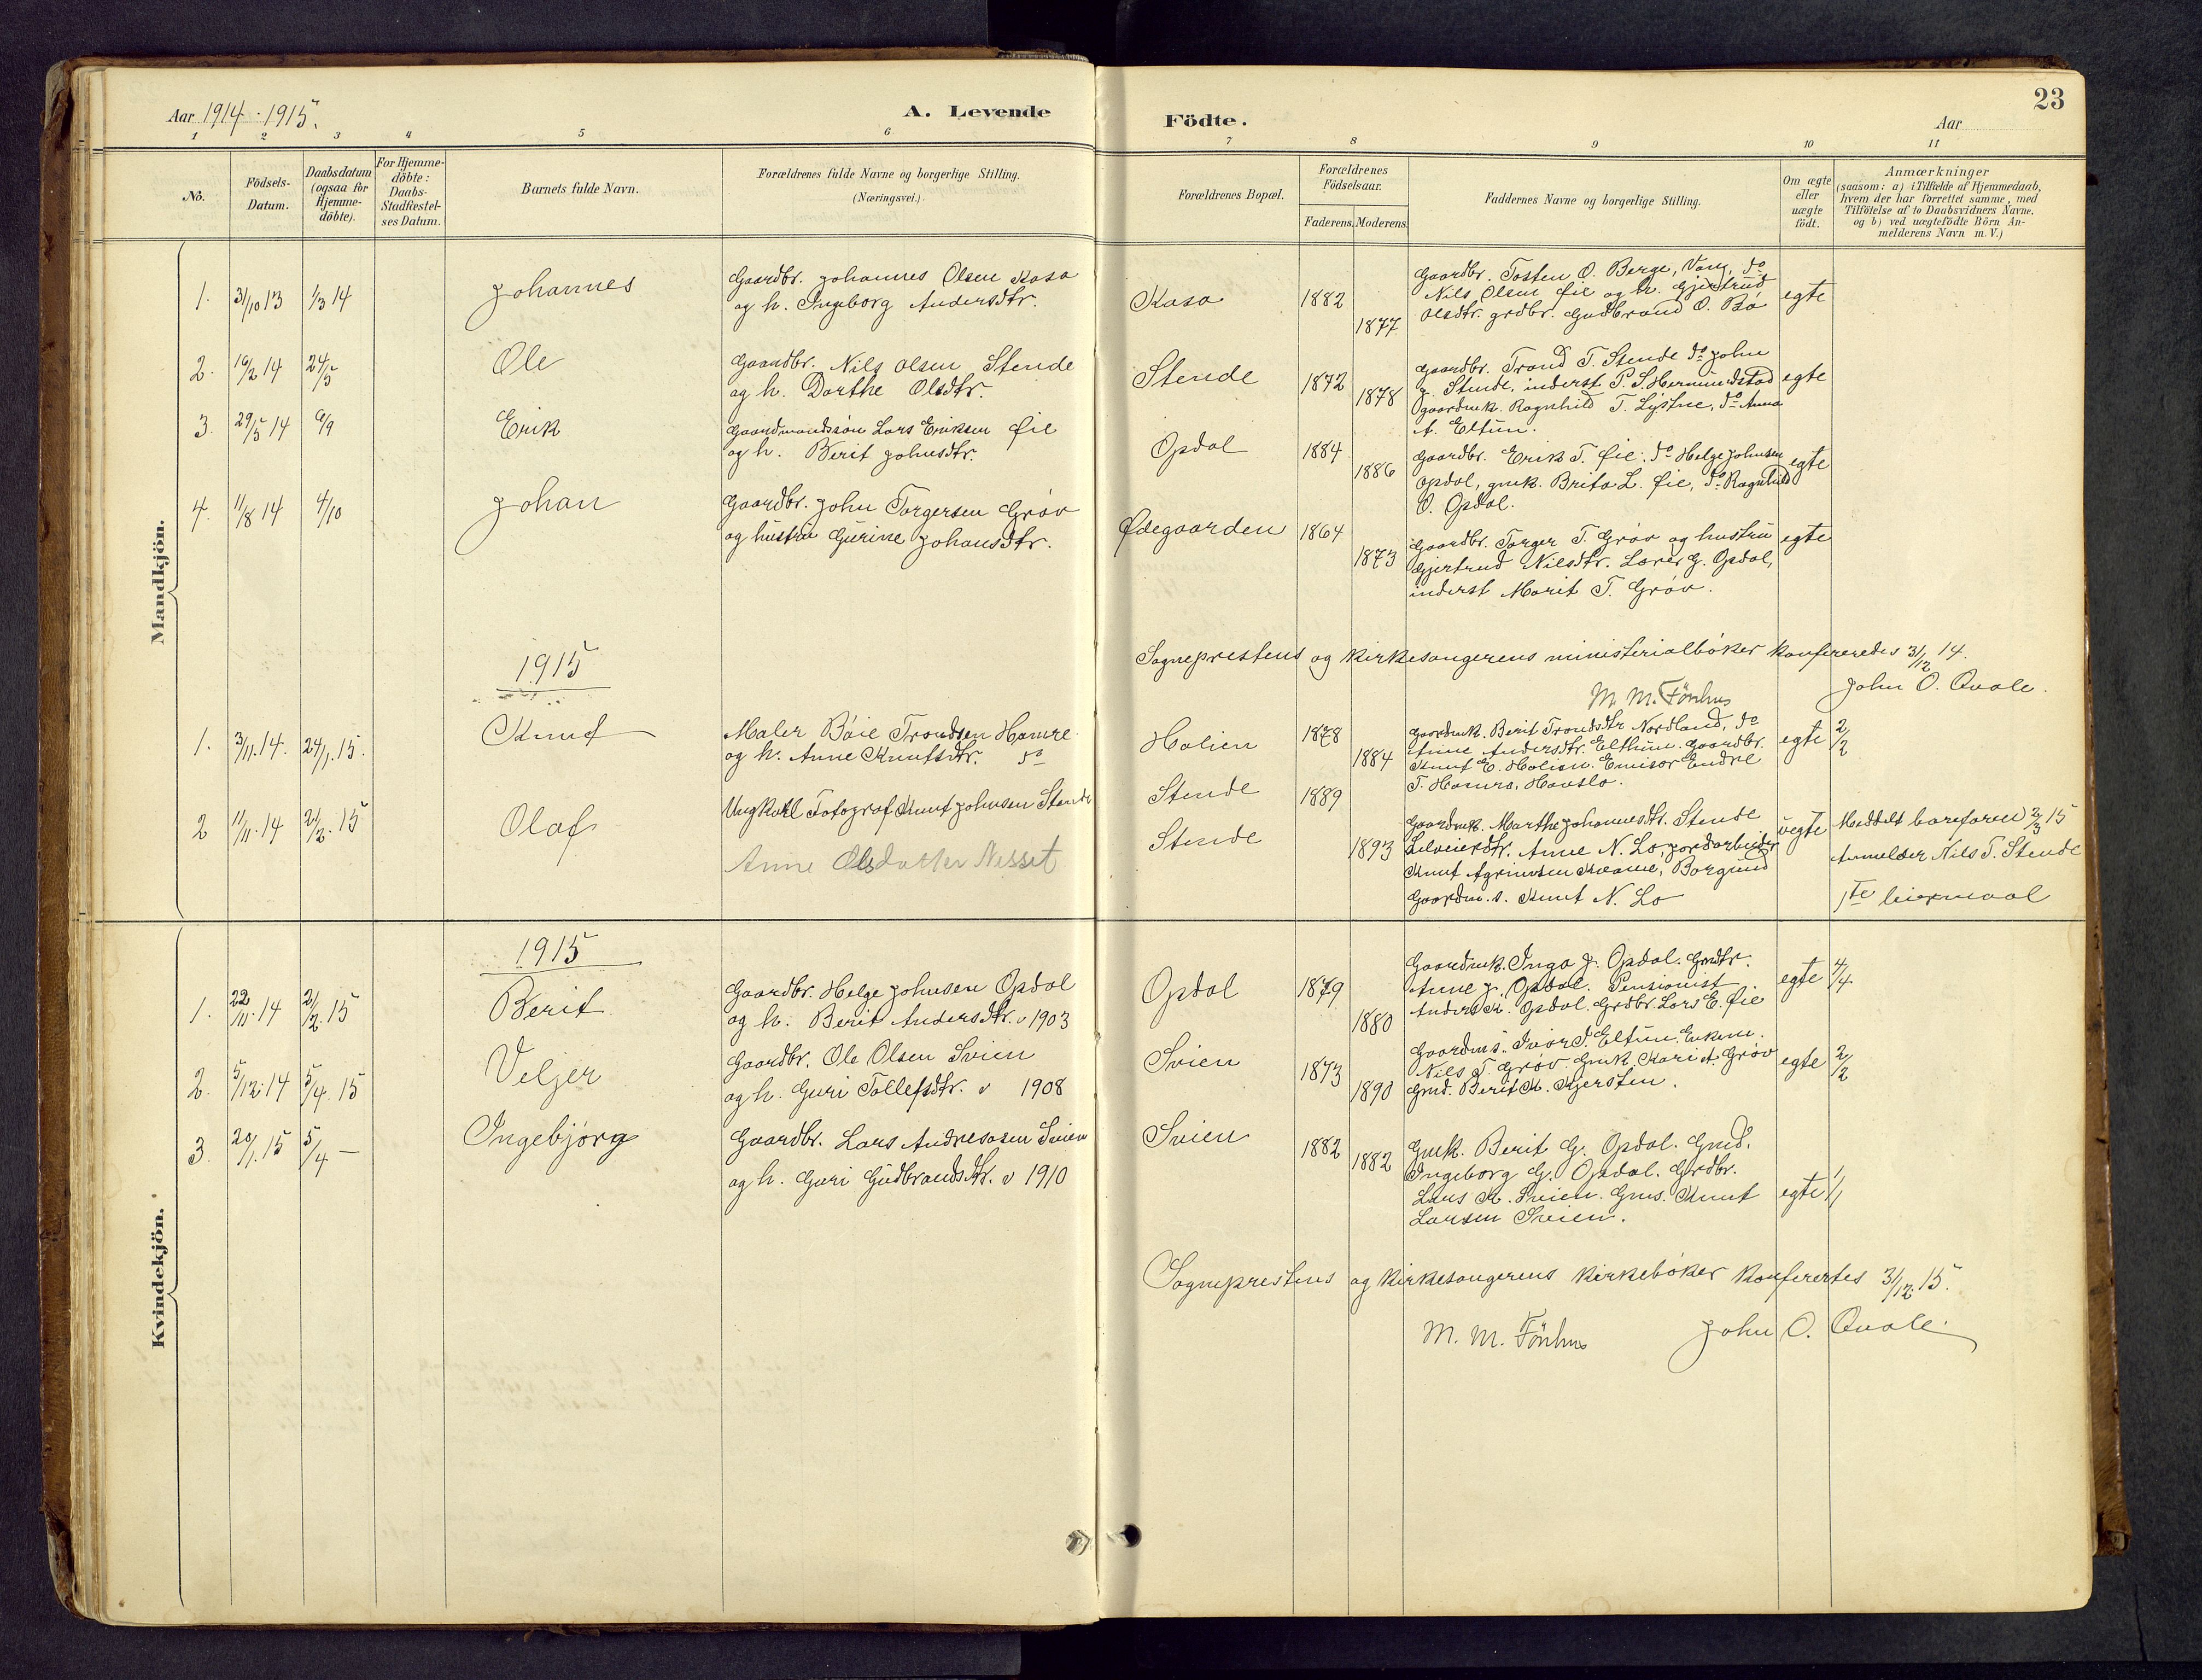 23
Aar 1914-1915.
A. Levende
Födte.
Aar
1 2 3 4 5 6 7 8 9 10 11
No.
Födsels-
Datum.
Daabsdatum
(ogsaa for
Hjemme-
döbte).
For Hjemme-
döbte:
Daabs-
Stadfæstel-
ses Datum.
Barnets fulde Navn.
Forældrenes fulde Navne og borgerlige Stilling.
(Næringsvei.)
Forældrenes Bopæl.
Forældrenes
Födselsaar.
Faderens. Moderens.
Faddernes Navne og borgerlige Stilling.
Om ægte
eller
uægte
födt.
Anmærkninger
(saasom: a) i Tilfælde af Hjemmedaab,
hvem der har forrettet samme, med
Tilföielse af to Daabsvidners Navne,
og b) ved uægtefödte Börn An-
melderens Navn m. V.)
Mandkjön.
1. 31/10 13 1/3 14 Johannes
Gaardbr. Johannes Olsen Kasa
og h. Ingeborg Andersdtr.
Kasa 1882 1877
Gaardbr. Tosten O. Berge, Vang, do
Nils Olsen Øie og h. Gjertrud
Olsdtr. grdbr. Gudbrand O. Bö
egte
2. 16/2 14 24/5 Ole
Gaardbr. Nils Olsen Stende
og h. Dorthe Olsdtr.
Stende 1872 1878
Gaardbr. Trond T. Stende do John
J. Stende, inderst P. S. Hermundstad
gaardmk. Ragnhild T. Lystne, do Anna
A. Eltun.
egte
3. 29/5 14 6/9 Erik
Gaardmandssön Lars Eriksen Øie
og h. Berit Johnsdtr.
Opdal 1884 1886
Gaardbr. Erik T. Øie, do Helge Johnsen
Opdal, gmk. Brita L. Øie, do Ragnhild
O. Opdal.
egte
4. 11/8 14 4/10 Johan
Gaardbr. John Torgersen Gröv
og hustru Gurine Johansdtr.
Ødegaarden 1864 1873
Gaardbr. Torger T. Gröv og hustru
Gjertrud Nilsdtr. Lærer G. Opdal,
inderst Marit T. Gröv.
egte
Sogneprestens og kirkesangerens ministerialbøker konfereredes 31/12 14.
M. M. Fönhus John O. Qvale.
1915
1. 3/11.14. 24/1.15. Knut
Maler Böie Trondsen Hamre
og h. Anne Knutsdtr. do
Holien 1878 1884
Gaardmk. Berit Trondsdtr Nordland, do
Anne Andersdtr. Elthun. Gaardbr.
Knut E. Holien. Emisær Endre
T. Hamre, Hauslo.
egte 2/2
2 11/11.14 21/2.15 Olaf
Ungkarl Fotograf Knut Johnsen Stende
Anne Olsdatter Nesset
Stende 1889
Stende 1893
Gaardmk. Marthe Johannesdtr. Stende
Selveierdtr. Anne N. Lo, jordarbeider
Knut Agrimsen Kvame, Borgund
Gaardm. s. Knut N. Lo
uegte
Meddelt barnefaren 2/3 15
Anmelder Nils T. Stende
1te leiermaal
Kvindekjön.
1915
1. 22/11.14 21/2.15 Berit
Gaardbr. Helge Johnsen Opdal
og h. Berit Andersdtr. v 1903
Opdal 1879 1880
Gaardmk. Inga J. Opdal. Gmdtr.
Anne J. Opdal. Pensionist
Anders K. Opdal. Grdbr. Lars E. Øie
egte 4/4
2. 5/12.14 5/4.15 Veljer
Gaardbr. Ole Olsen Svien
og h. Guri Tollefsdtr. v 1908
Svien 1873 1890
Gaardms. Ivar T. Eltun. Enkem.
Nils T. Gröv. Gmk. Kari A. Gröv
Gmd. Berit K. Kjersten.
egte 2/2
3. 20/1.15 5/4 — Ingebjörg
Gaardbr. Lars Andreassen Svien
og h. Guri Gudbrandsdtr. v 1910
Svien 1882 1882
Gmk. Berit G. Opdal. Gmd.
Ingeborg G. Opdal. Grdbr.
Lars K. Svien. Gms. Knut
Larsen Svien.
egte 1/1
Sogneprestens og kirkesangerens kirkebøker konferertes 31/12.15.
M. M. Fönhus John O. Qvale.